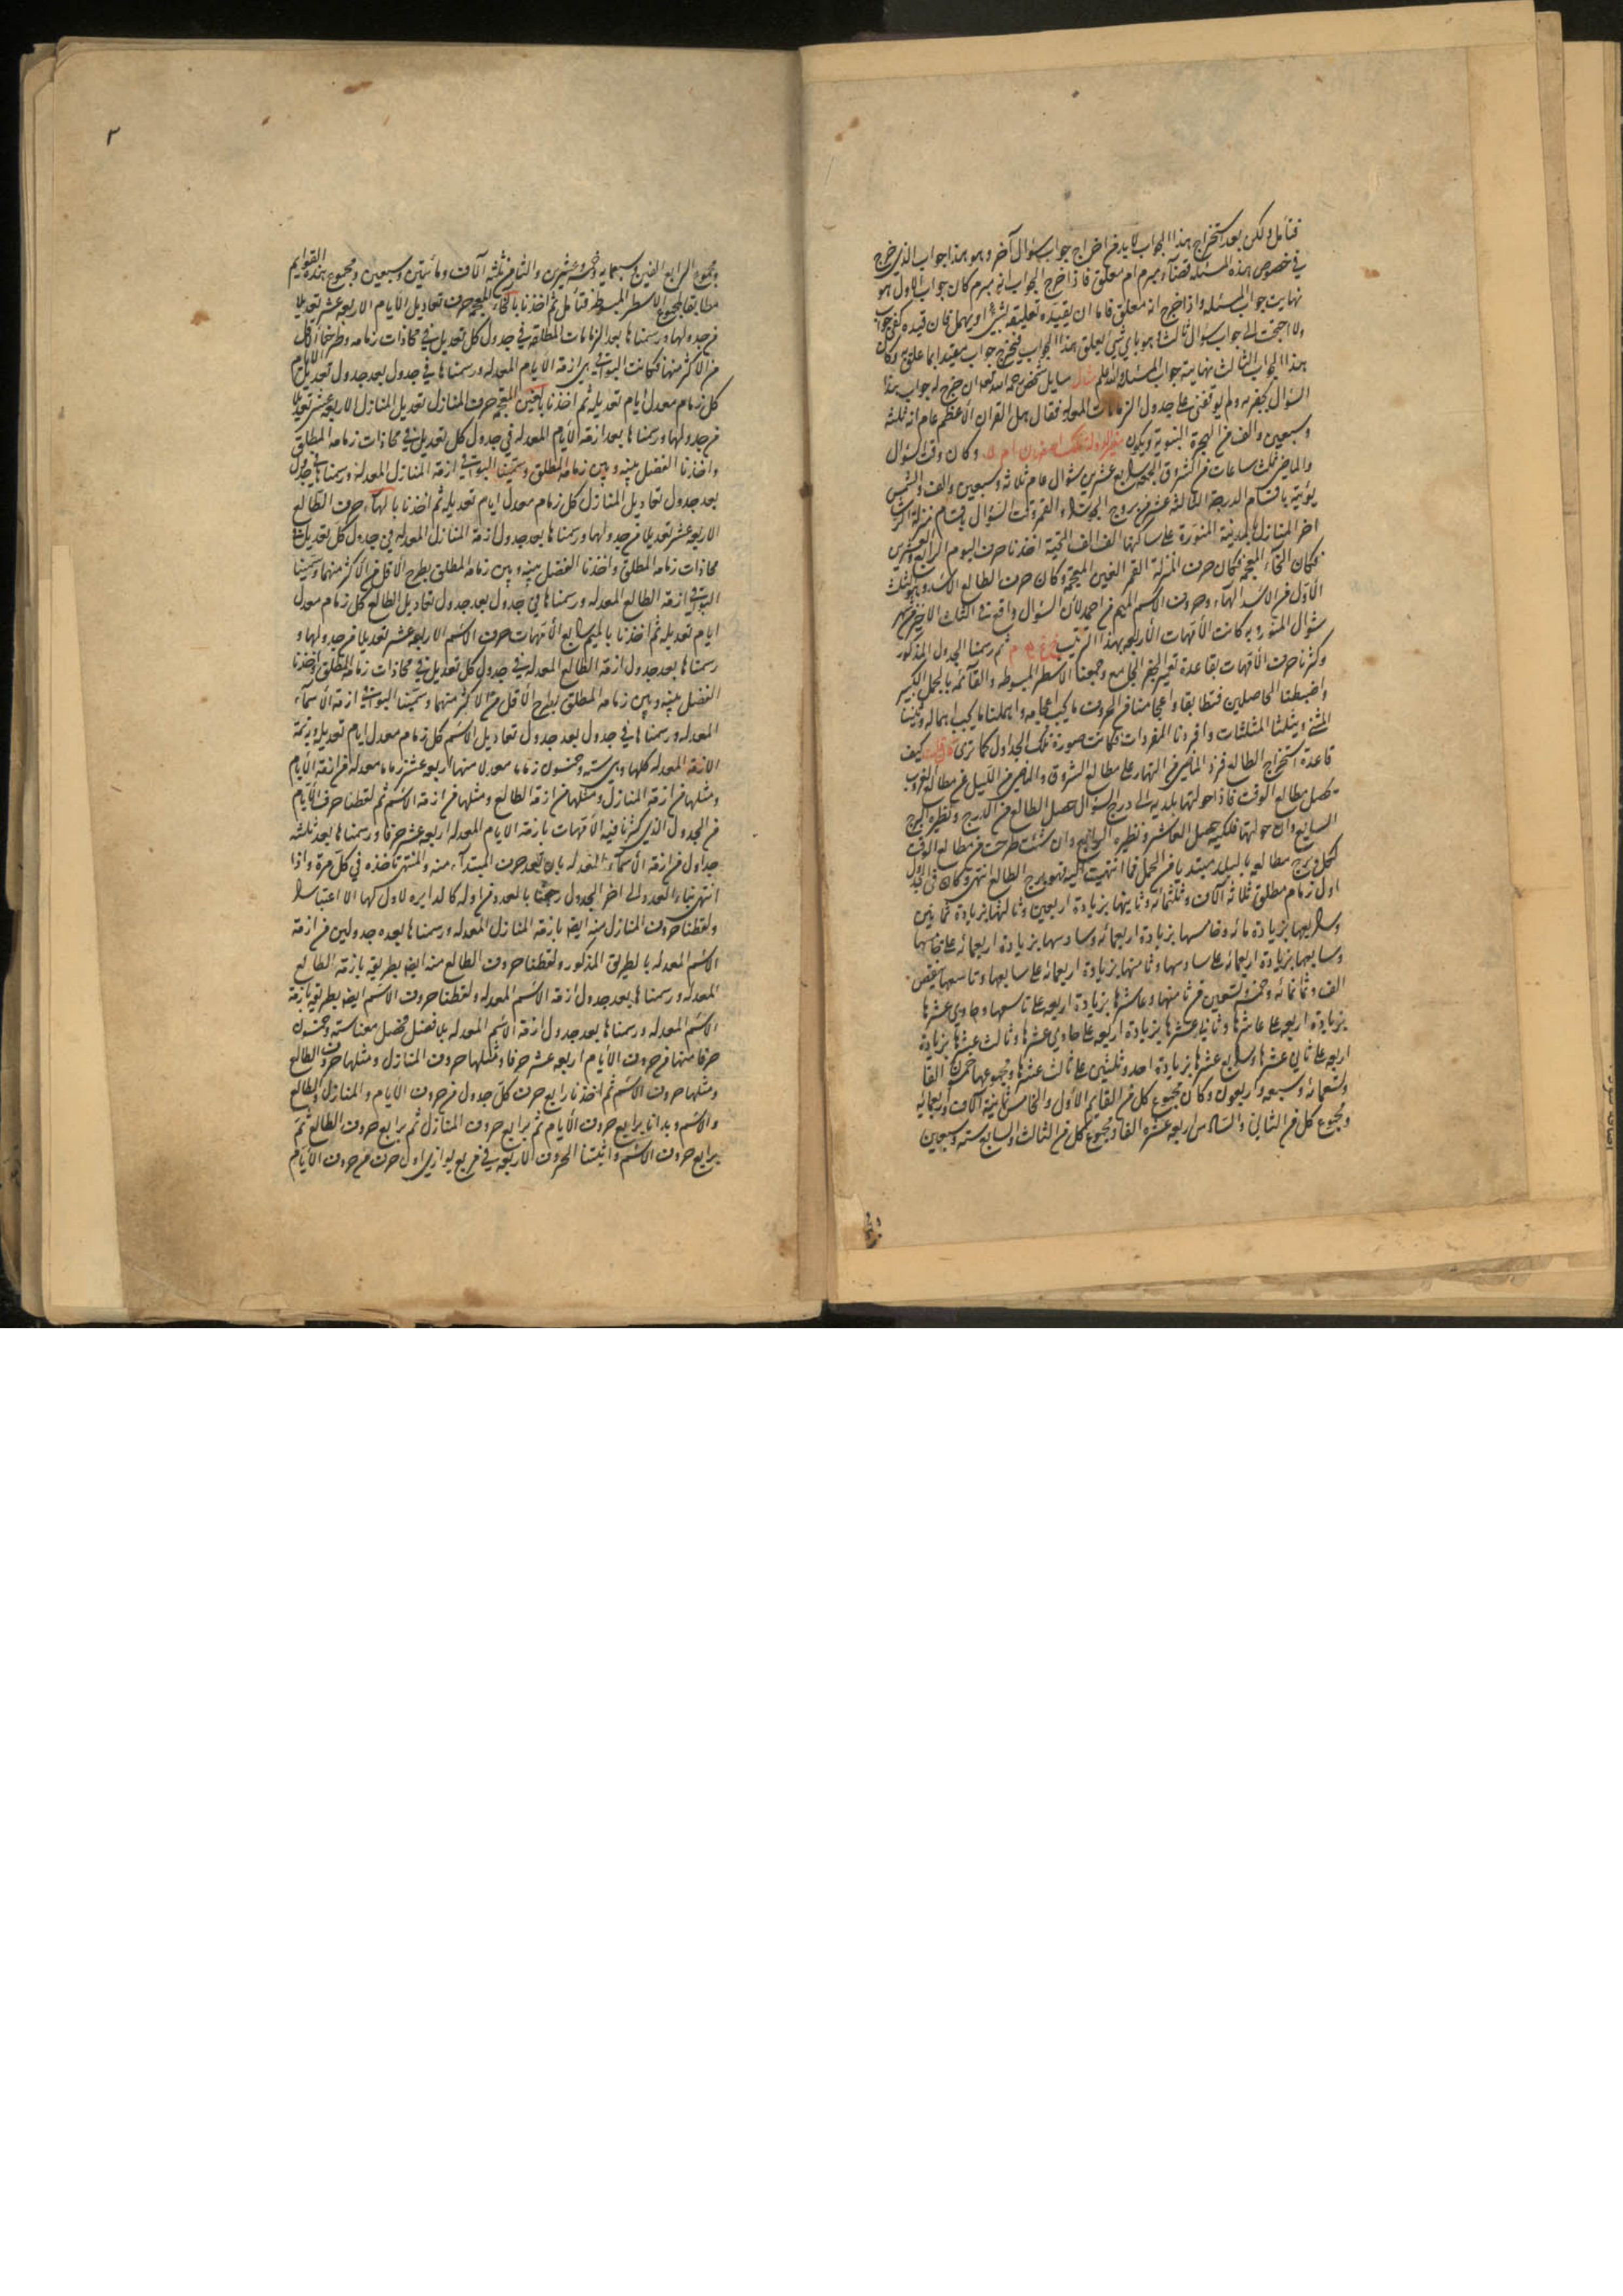 فتأمل ولكن بعد استخراج هذا الجواب لا بد من اخراج جواب سؤال آخر وهو هذا جواب الذي خرج
في خصوص هذه المسئلة قضاء مبرم ام معلق فاذا خرج الجواب انه مبرم كان جواب الاول هو
نهايت جواب المسئله واذا خرج انه معلق فاما ان يقيده تعليقه بشئ او يهمل فان قيده كفى جواب
والا احتجت الى جواب سؤال ثالث وهو باي شئ يعلق هذا الجواب فيخرج جواب
هذا الجواب الثالث نهايته جواب المسئله والله اعلم مثال سايل شخص
السؤال على جدول الزمامات المعدله فقال هل القران الاعظم عام انه ثلثه
وسبعين والف من الهجرة النبوية ويكون وكان وقت السؤال
والماضي ثلث ساعات من شروق الجمعه رابع عشرين شوال عام ثلاثه وسبعين والف والشمس
الدرجة الثالثة عشر من بروج الجوزاء والقمر وقت السؤال منزلة الرشا
اخر المنازل بالمدينة المنورة على ساكنها الف الف التحية اخذنا حرف اليوم الرابع والعشرين
فكان الخاء المعجمه فكان حرف المنزلة القمر الغين المعجمه وكان حرف الطالع الاسد وهو الثلث
الاول من الاسد الهاء وحروف الاسم الميم من احمد لان السؤال واقع في الثلث الاخير من شهر
شوال المنور به كانت الامهات الاربعه بهذا الترتيب خ غ ه م ثم رسمنا الجدول المذكور
وكثرنا حرف الامهات بقاعدة الجفر الجامع وجمعنا الاسطر المبسوطه والقائمه بالجمل الكبير
واضبطنا الحاصلين فتطابقا واعجمنا من الحروف ما يجب اعجامه واهملنا ما يجب اهماله وثنينا
المثنى وثلثنا المثلثات وافردنا المفردات فكانت صورة تلك الجداول كما ترى فان قلت كيف
قاعدة استخراج الطالع فزد الماضي من النهار على مطالع الشروق والماضي من الليل على مطالع الغروب
تحصل مطالع الوقت فاذا حولتها بلديه الى درج السؤال حصل الطالع من الدرج ونظيره البرج
السابع وان حولتها فلكيه حصل العاشر ونظيره الرابع وان شئت طرحت من مطالع الوقت
لكل برج مطالعه بالبلد مبتدءا من الحمل فما انتهيت اليه فهو برج الطالع انتهى وكان في الجدول
اول زمام مطلق ثلاثة آلاف وثلثمائه وثانيها بزيادة اربعين وثالثها بزيادة ثمانين
ورابعها بزيادة مائه وخامسها بزيادة اربعمائه وسادسها بزيادة اربعمائه على خامسها
وسابعها بزيادة اربعمائه على سادسها وثامنها بزيادة اربعمائه على سابعها وتاسعها بنقص
الف وثمانمائه وخمسة وتسعين من ثامنها وعاشرها بزيادة اربعه على تاسعها وحادي عشرها
بزيادة اربعه على عاشرها وثاني عشرها بزيادة اربعه على حادي عشرها وثالث عشرها بزيادة
اربعه على ثاني عشرها ورابع عشرها بزيادة احد وثلثين على ثالث عشرها ومجموعها خمسون الفا
وتسعمائه وسبعه واربعون وكان مجموع كل من القايم الاول والخامس ثمانية آلاف واربعمائه
ومجموع كل من الثاني والسادس اربعه عشره الفا ومجموع كل من الثالث والسابع سته وسبعين
٢
ومجموع الرابع الفين وسبعمايه وخمسه وعشرين والثامن ثلثه آلاف ومائتين وسبعين ومجموع هذه القوايم
مطابق المجموع الاسطر المبسوطه فتأمل ثم اخذنا بالخاء المعجمه حرف تعاديل الايام الاربعه عشر تعديلا
من جدولها ورسمناها بعد الزمامات المطلقه في جدول كل تعديل في محاذات زمامه وطرحنا الاقل
من الاكثر منها فكانت البواقي هي ازمة الايام المعدله ورسمناها في جدول بعد جدول تعديل الايام
كل زمام معدل ايام تعديله ثم اخذنا بالغين المعجمه حرف المنازل تعديل المنازل الاربعه عشر تعديلا
من جدولها ورسمناها بعد ازمة الايام المعدله في جدول كل تعديل في محاذات زمامه المطلق
واخذنا الفضل بينه وبين زمامه المطلق وسمينا البواقي ازمة المنازل المعدله ورسمناها في جدول
بعد جدول تعاديل المنازل كل زمام معدل ايام تعديله ثم اخذنا بالهاء حرف الطالع
الاربعه عشر تعديلا من جدولها ورسمناها بعد جدول ازمة المنازل المعدله في جدول كل تعديل في
محاذات زمامه المطلق واخذنا الفضل بينه وبين زمامه المطلق بطرح الاقل من الاكثر منهما وسمينا
البواقي ازمة الطالع المعدله ورسمناها في جدول بعد جدول تعاديل الطالع كل زمام معدل
ايام تعديله ثم اخذنا بالميم رابع الامهات حرف الاسم الاربعه عشر تعديلا من جدولها و
رسمناها بعد جدول ازمة الطالع المعدله في جدول كل تعديل في محاذات زمامه المطلق واخذنا
الفضل بينه وبين زمامه المطلق بطرح الاقل من الاكثر منهما وسمينا البواقي ازمة الاسماء
المعدله ورسمناها في جدول بعد جدول تعاديل الاسم كل زمام معدل ايام تعديله
الازمة المعدله كلها وهي سته وخمسون زماما معدلا منها اربعه عشر زماما معدله من ازمة الايام
ومثلها من ازمة المنازل ومثلها من ازمة الطالع ومثلها من ازمة الاسم ثم لقطنا حرف الايام
من الجدول الذي كثرنا فيه الامهات بازمة الايام المعدله اربعه عشر حرفا ورسمناها بعد ثلثه
جداول من ازمة الاسماء المعدله بان نعد حرف المبتداء منه والمنتهى نأخذه في كل مرة واذا
انتهى بناء العدد الى اخر الجدول رجعنا بالعدد من اوله كالدايره لا اول لها الا اعتبارا
ولقطنا حروف المنازل منه ايضا بازمة المنازل المعدله ورسمناها بعده جدولين من ازمة
الاسم المعدله بالطريق المذكور ولقطنا حروف الطالع منه ايضا بطريقه بازمة الطالع
المعدله ورسمناها بعد جدول ازمة الاسم المعدله ولقطنا حروف الاسم ايضا بطريقه بازمة
الاسم المعدله ورسمناها بعد جدول ازمة الاسم المعدله بلا فصل فحصل معنا سته وخمسون
حرفا منها من حروف الايام اربعه عشر حرفا ومثلها حروف المنازل ومثلها حروف الطالع
ومثلها حروف الاسم ثم اخذنا رابع حرف كل جدول من حروف الايام والمنازل والطالع
والاسم وبدانا برابع حروف الايام ثم برابع حروف المنازل ثم برابع حروف الطالع ثم
برابع حروف الاسم واثبتنا الحروف الاربعه في مربع يوازي اول حرف من حروف الايام